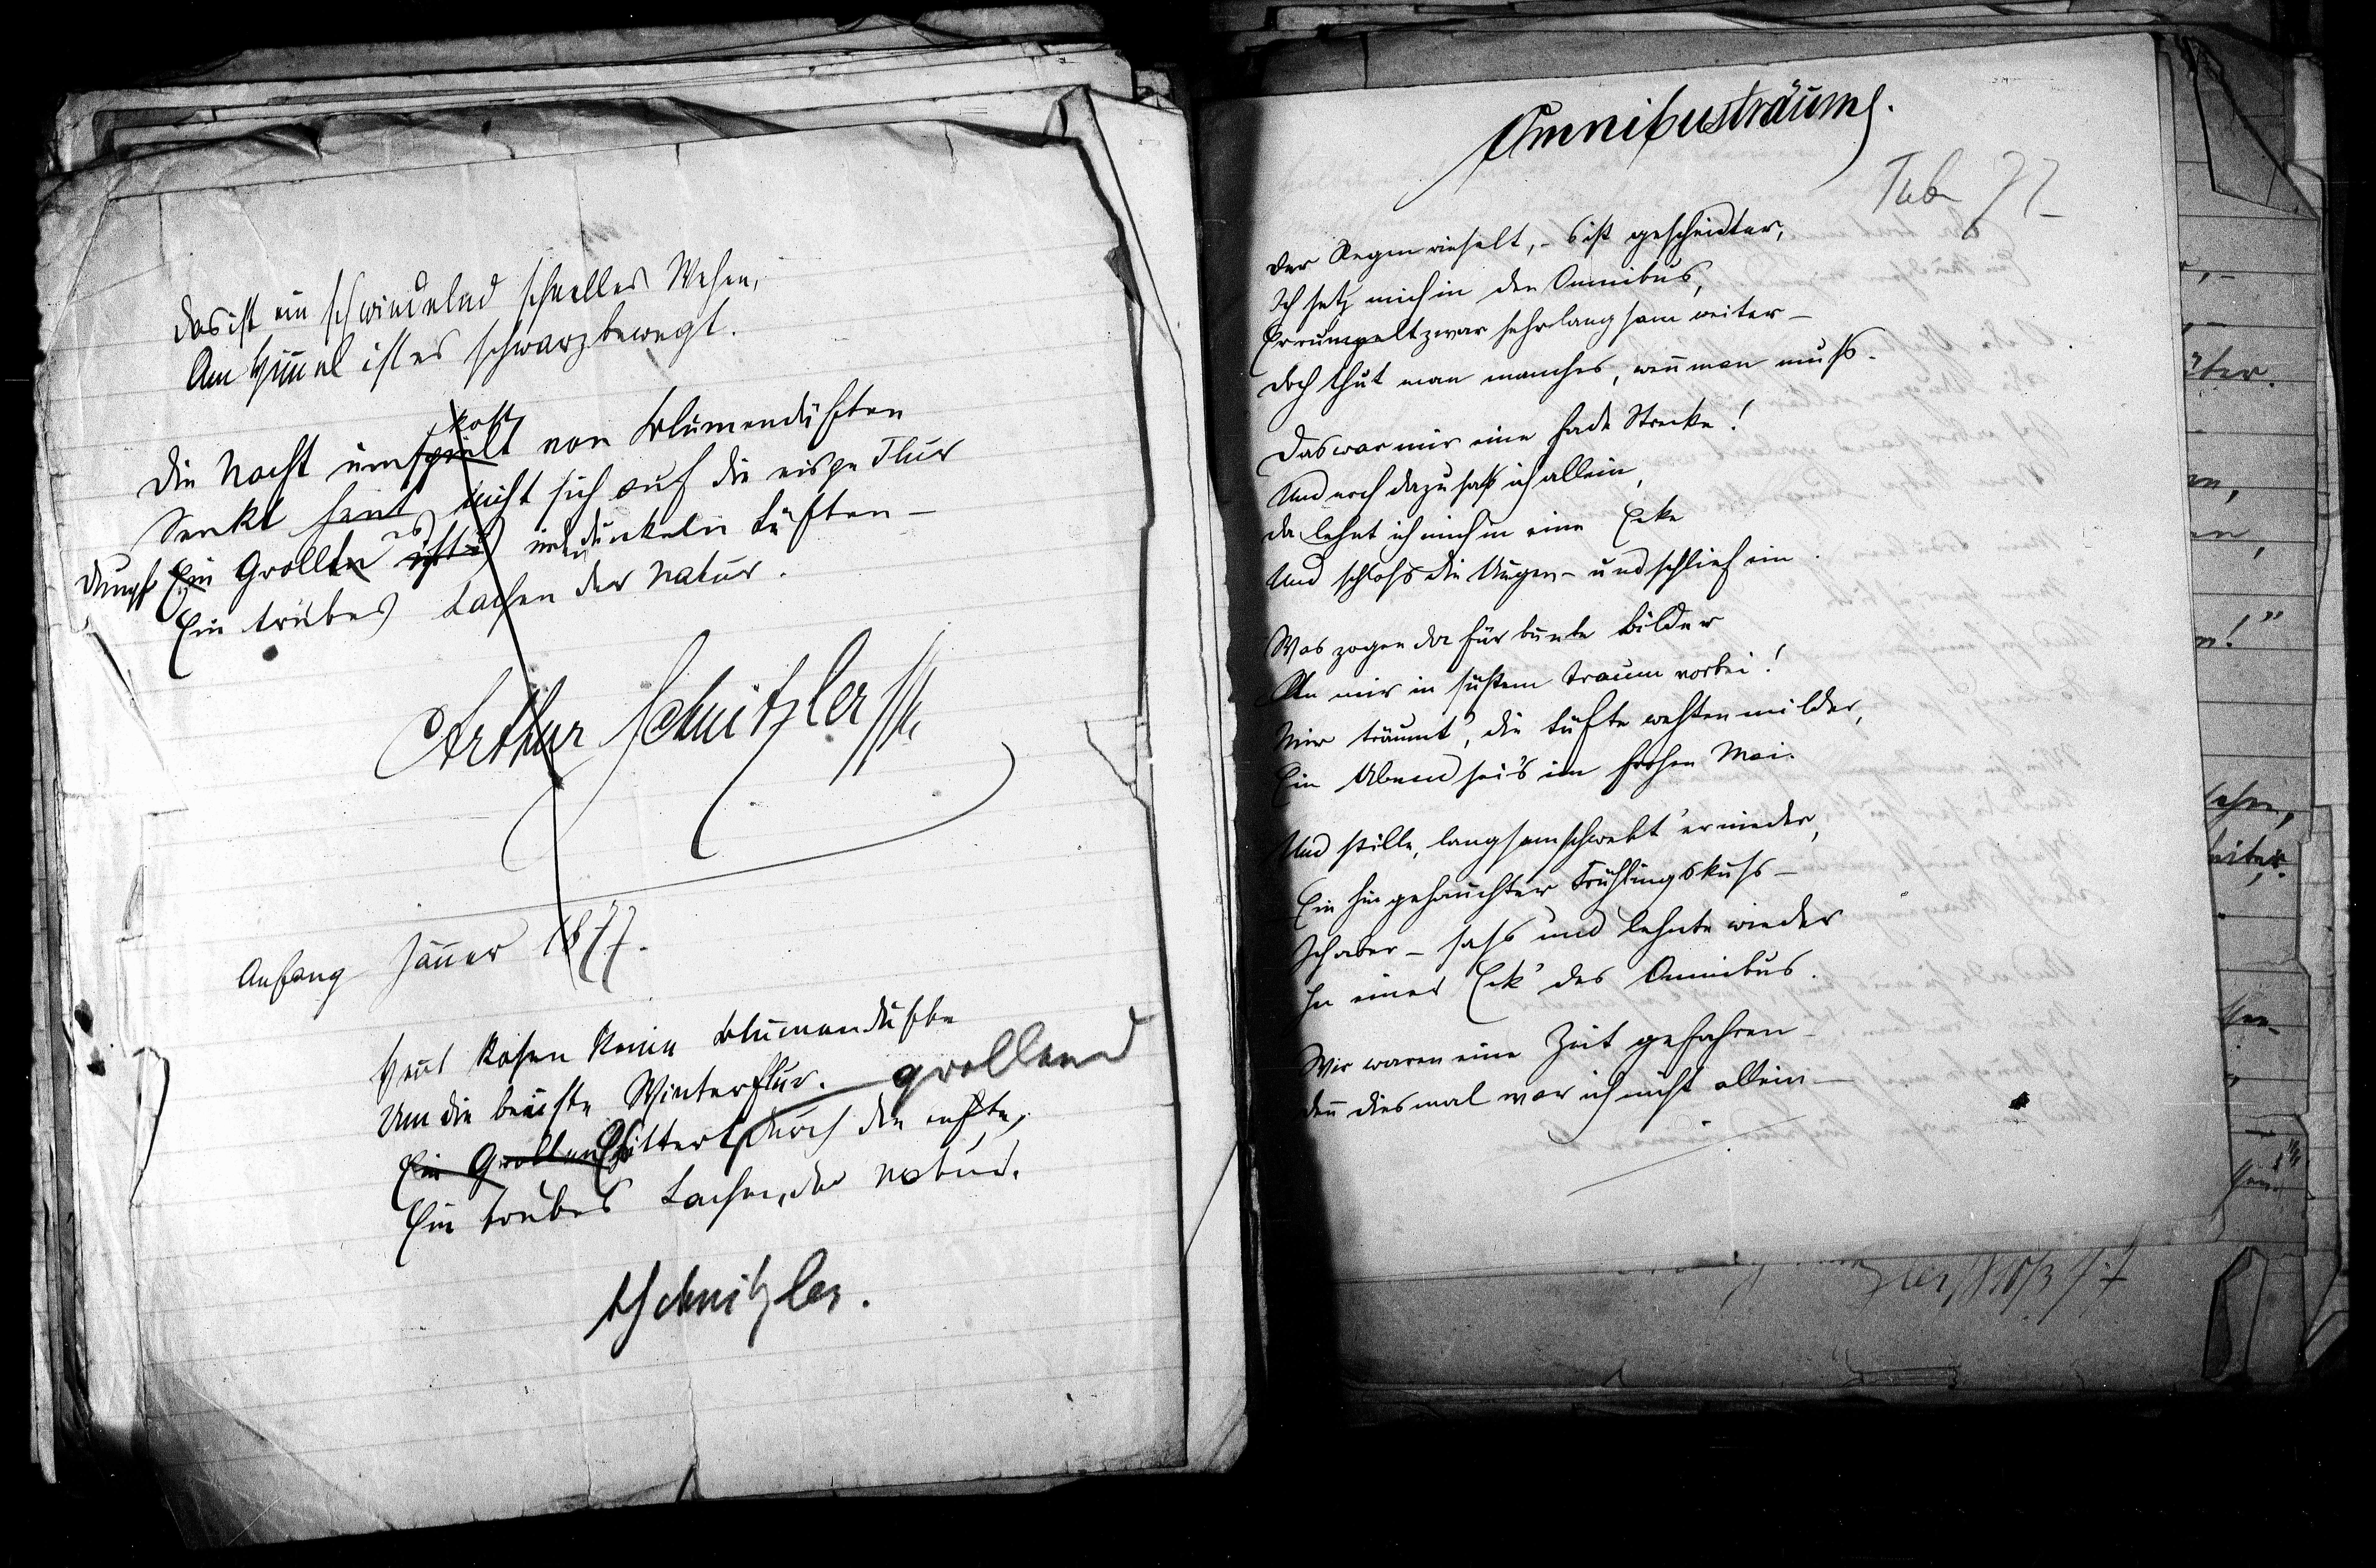 Das ist ein schwindelnd schnelles Wehen,
Am Himmel ist es schwarzbewegt.
kost
Die Nacht umspielt von Blumendüften
Senkt heut nicht sich auf die eisge Flur
Dumpf Ein Grollen es ist's in den dunkeln Lüften –
Ein trübes Lachen der Natur.
Arthur Schnitzler
Anfang Jänner 1877.
Heut kosen keine Blumendüfte
Um die beeiste Winterflur. grollend
Ein Grollen Es zittert durch die Lüfte,
Ein trübes Lachen, der Natur.
ASchnitzler.
Omnibusträume.
Feb 77
Der Regen rieselt, – 's ist gescheidter,
Ich setz mich in den Omnibus,
Er rumpelt zwar sehr langsam weiter –
Doch thut man manches, weñ man muss.
Das war mir eine fade Strecke!
Und noch dazu saß ich allein,
Da lehnt ich mich in eine Ecke
Und schloss die Augen – und schlief ein.
Was zogen da für bunte Bilder
An mir in süßem Traum vorbei!
Mir träumt', die Lüfte wehten milder,
Ein Abend sei's im frohen Mai.
Und stille, langsam schwebt' er nieder,
Ein hingehauchter Frühlingskuss –
Ich aber – sass und lehnte wieder
In einer Eck' des Omnibus.
Wir waren eine Zeit gefahren –
Deñ diesmal war ich nicht allein –